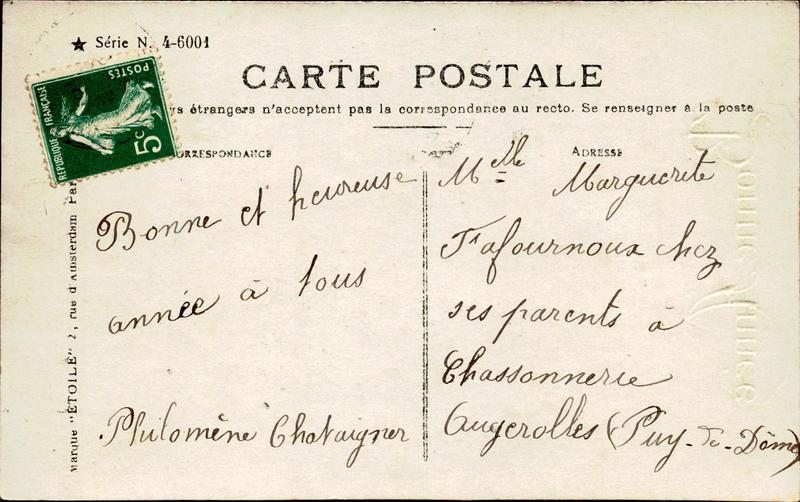 ★ Série N. 4-6001
POSTES
REPUBLIQUE FRANÇAISE
5c
CARTE POSTALE
ys étrangers n'acceptent pas la correspondance au recto. Se renseigner à la poste
ORRESPONDANCE
ADRESSE
Bonne et heureuse
année à tous
Philomène Chataigner
Melle Marguerite
Fafournoux chez
ses parents à
Chassonnerie
Augerolles (Puy-de-Dôme)
Marque "ÉTOILE" 2, rue d'Amsterdam Par
Bonne Année